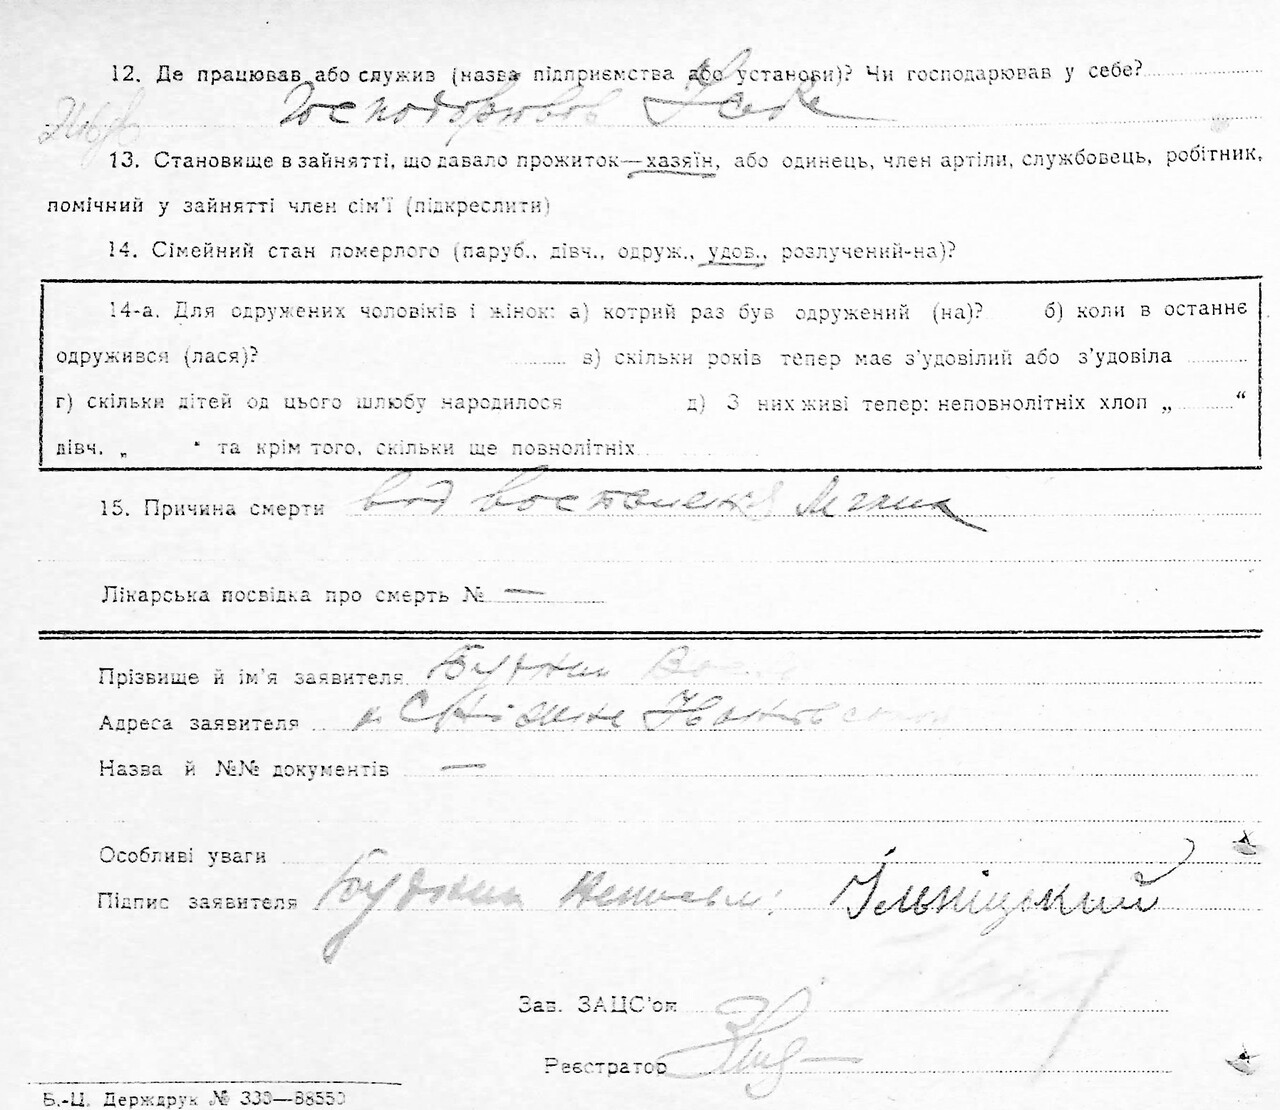 12. Де працював або служив (назва підприємства або установи)? Чи господарював у себе?
Господарював у себе
13. Становище в зайнятті, що давало прожиток—хазяїн, або одинець, член артіли, службовець, робітник,
помічний у зайнятті член сім'ї (підкреслити)
14. Сімейний стан померлого (паруб., дівч., одруж., удов., розлучений-на)?
14-а. Для одружених чоловіків і жінок: а) котрий раз був одружений (на)? б) коли в останнє
одружився (лася)? в) скільки років тепер має з'удовілий або з'удовіла
г) скільки дітей од цього шлюбу народилося д) З них живі тепер: неповнолітніх хлоп „ “
дівч. „ “ та крім того, скільки ще повнолітніх
15. Причина смерти
Лікарська посвідка про смерть № —
Прізвище й ім'я заявителя
Адреса заявителя
Назва й №№ документів —
Особливі уваги
Підпис заявителя Ільніцький
Зав. ЗАЦС'ом
Реєстратор
Б.-Ц. Держдрук № 330—88550